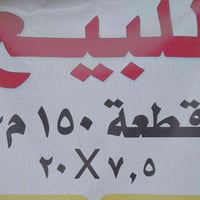 للبيع
قطعة ١٥٠ م٢
٢٠ X ٧,٥